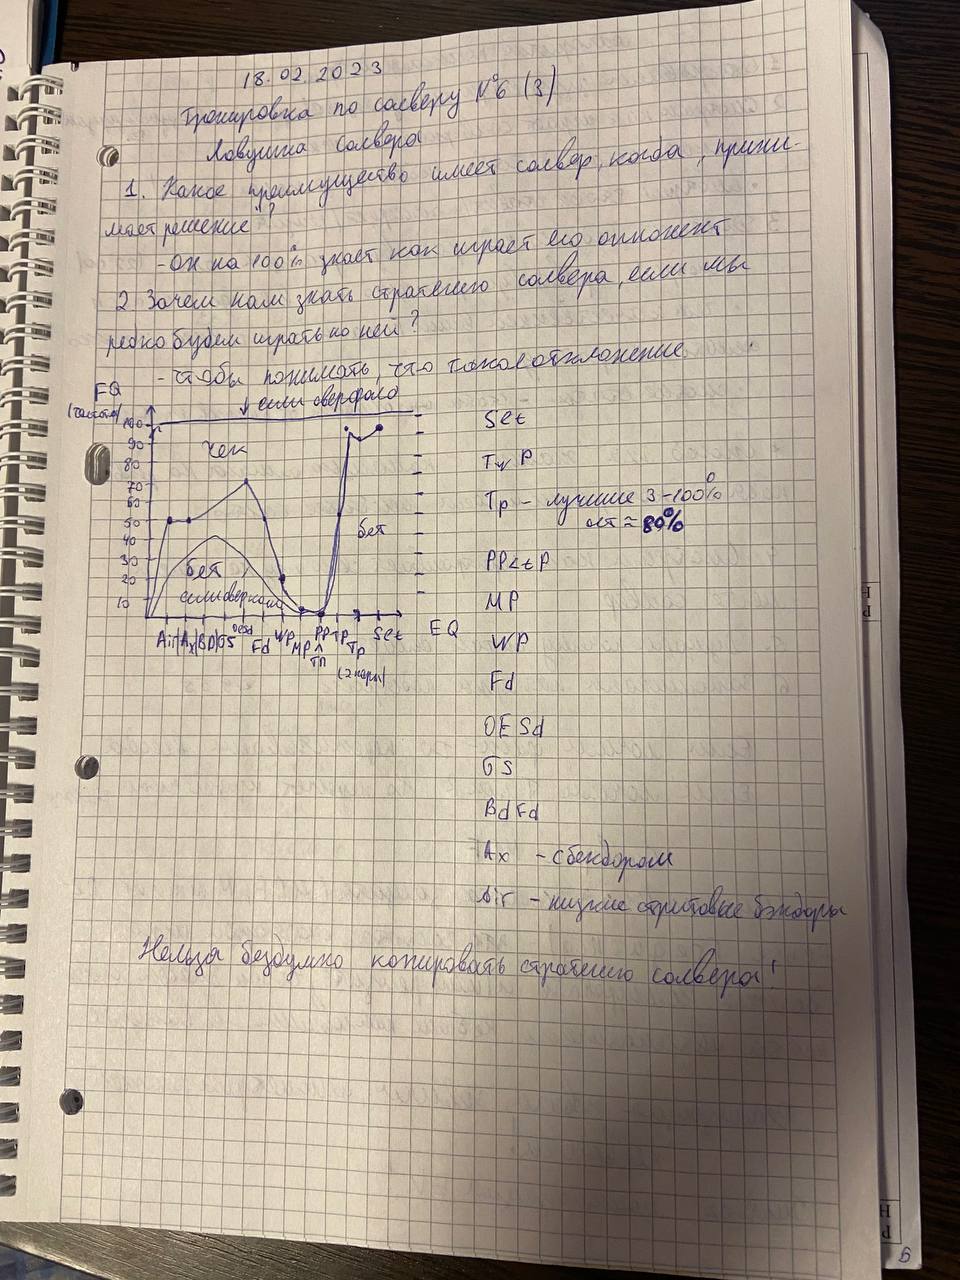 18.02.2023
Тренировка по солверу №6 (3)
Ловушка солвера
1. Какое преимущество имеет солвер, когда, прини-
мает решение?
- Он на 100% знает как играет его оппонент
2 Зачем нам знать стратегию солвера, если мы
редко будем играть по ней?
- чтобы понимать, что такое отклонение.
EQ
(частота)
↓ если оверфолд
100
90
80
70
60
50
40
30
20
10
чек
бет
если оверколл
бет
Air Ax BD GS OESd Fd WP MP PP<TП TP Tp Set EQ
(2 пары)
Set
Tw P
Tp - лучшие 3-100%
ост ≈ 80%
PP<tP
MP
WP
Fd
OESd
GS
BdFd
Ax - с бекдором
Air - низкие стритовые бэкдоры
Нельзя бездумно копировать стратегию солвера!
9